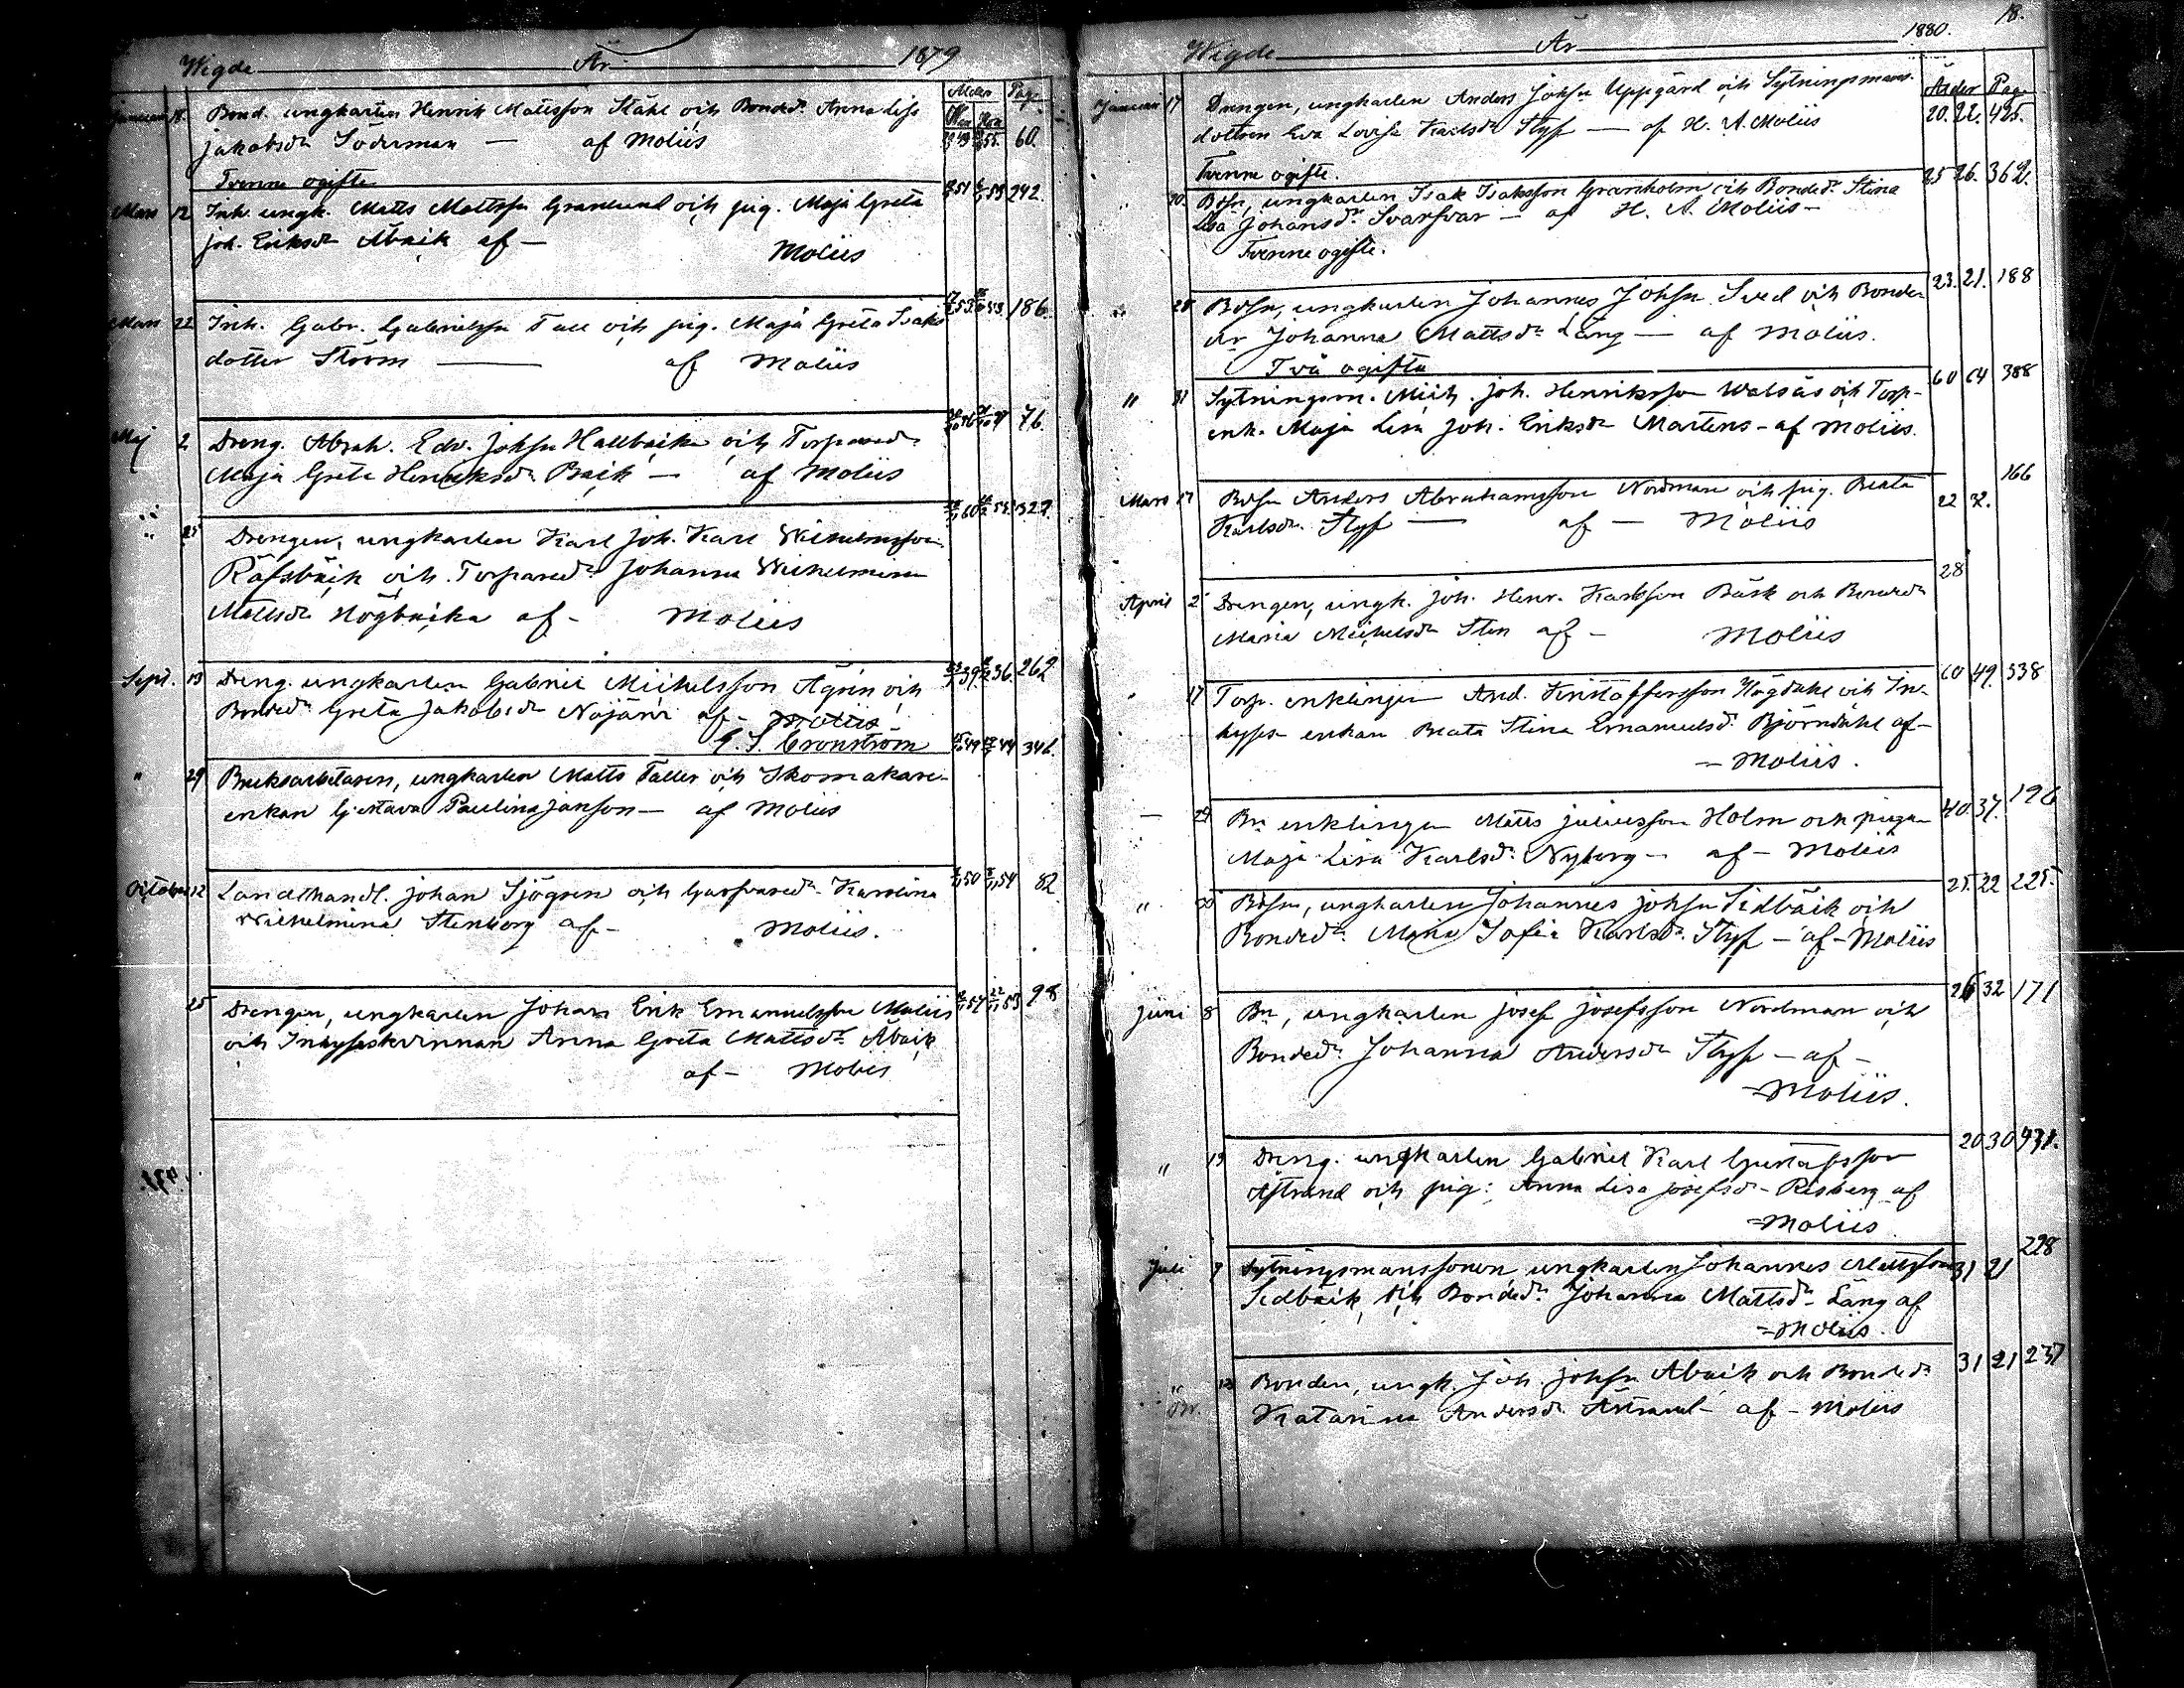 Wigde År 1879
Ålder Pag.
Man Qva
Januari 18 Bond. ungkarlen Henrik Mattsson Ståhl och Bondedr Anna Lisa
Jakobsdr Söderman — af Moliis 60.
Tvenne ogifte
Mars 12 Inh. ungk. Matts Mattssn Granlund och pig. Maja Greta 242.
Joh. Eriksdr Åbäck af —
Moliis
Mars 22 Inh. Gabr. Gabrielssn Tall och pig. Maja Greta Isaks 186.
dotter Ström — af Moliis
Maj 2 Dreng. Abrah. Edv. Johssn Hallbäcka och Torparedr 76.
Maja Greta Henriksdr Bäck — af Moliis
" 25 Drengen, ungkarlen Karl Joh. Karl Wilhelmsson 327.
Räfsbäck och Torparedr Johanna Wilhelmina
Mattsdr Högbacka af — Moliis
Sept. 13 Dreng. ungkarlen Gabriel Michelsson Ågren och 262
Bondedr Greta Jakobsdr Nöjärvi af — Moliis
G. S. Cronström
" 29 Bruksarbetaren, ungkarlen Matts Taller och Skomakare- 346.
enkan Gustava Paulina Janson — af Moliis
October 12 Landthandl. Johan Sjögren och Garfvaredr Karolina 82
Wilhelmina Stenborg af — Moliis.
25 Drengen, ungkarlen Johan Erik Emanuelsson Moliis 98
och Inhyseskvinnan Anna Greta Mattsdr Åbäck
af — Moliis
18.
Wigde År 1880.
Ålder Pag.
Januari 17 Drengen, ungkarlen Anders Johssn Uppgård och Sytningsmans- 20. 22. 425.
dottren Eva Lovisa Karlsdr Styf — af H. A. Moliis
Tvenne ogifte.
" 20 Bdsn, ungkarlen Isak Isaksson Granholm och Bondedr Stina 25 26. 362.
Lisa Johansdr Svarfvar — af H. A. Moliis —
Tvenne ogifte.
" 28 Bdsn, ungkarlen Johannes Johssn Sved och Bonde- 23. 21. 188
dr Johanna Mattsdr Lång — af Moliis.
Två ogifta
" 31 Sytningsm. Mich. Joh. Henriksson Walsås och Torp- 60 64 388
enk. Maja Lisa Joh. Eriksdr Martens — af Moliis.
Mars 27 Bdsn Anders Abrahamsson Nordman och pig. Beata 22 32. 166
Karlsdr Styf — af — Moliis
April 2 Drengen, ungk. Joh. Henr. Karlsson Bäck och Bondedr 28
Maria Michelsdr Sten af — Moliis
" 17 Torp. enklingen And. Kristoffersson Högdahl och In- 60 49. 338
hyses enkan Beata Stina Emanuelsdr Björndahl af —
— Moliis.
— 24 Bn enklingen Matts Juliusson Holm och pigan 40. 37. 196
Maja Lisa Karlsdr Nyberg — af — Moliis
" 30 Bdsn, ungkarlen Johannes Johssn Sidbäck och 25. 22 225.
Bondedr Maria Sofia Karlsdr Styf — af — Moliis
Juni 8 Bn, ungkarlen Josef Josefsson Nordman och 26 32 171
Bondedr Johanna Andersdr Styf — af —
— Moliis.
" 19 Dreng. ungkarlen Gabriel Karl Gustafsson 20 30 431.
Åstrand och pig. Anna Lisa Josefsdr Risberg af
— Moliis
Juli 9 Sytningsmanssonen ungkarlen Johannes Mattsson 31 21 228
Sidbäck och Bondedr Johanna Mattsdr Lång af
— Moliis.
" 13 Bonden, ungk. Joh. Johssn Åbäck och Bondedr 31 21 237
Katarina Andersdr Åstrand — af — Moliis